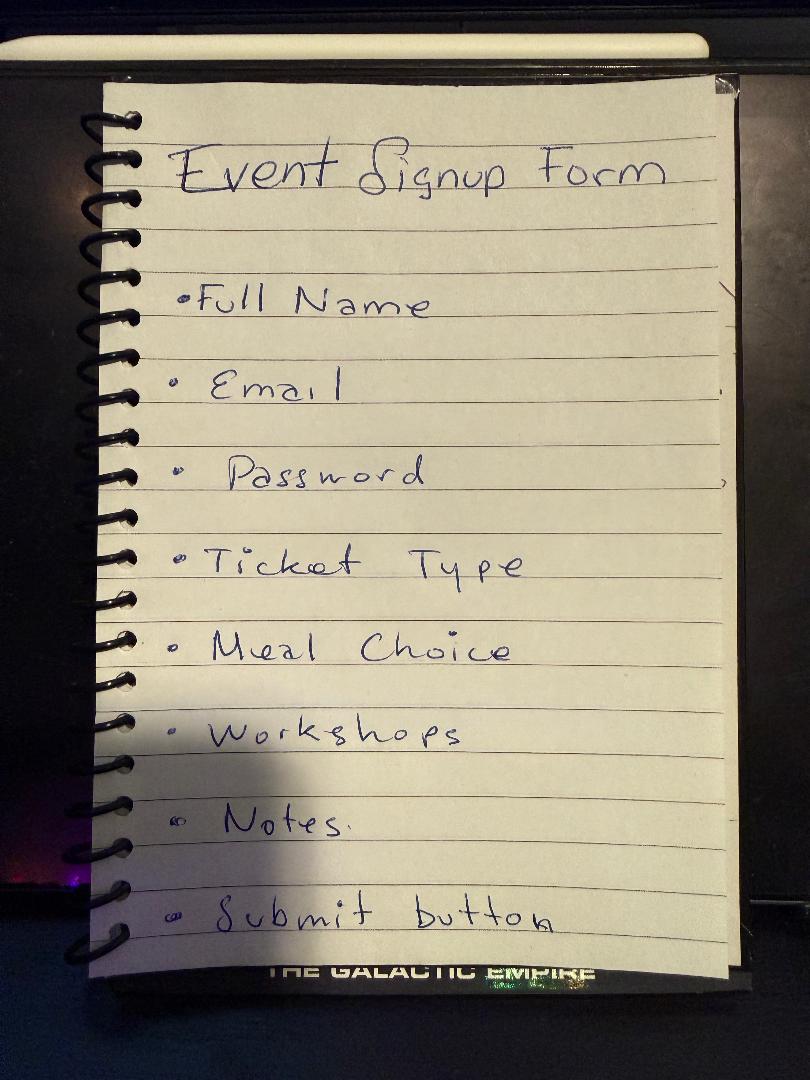 Event Signup Form
• Full Name
• Email
• Password
• Ticket Type
• Meal Choice
• Workshops
• Notes.
• Submit button
THE GALACTIC EMPIRE